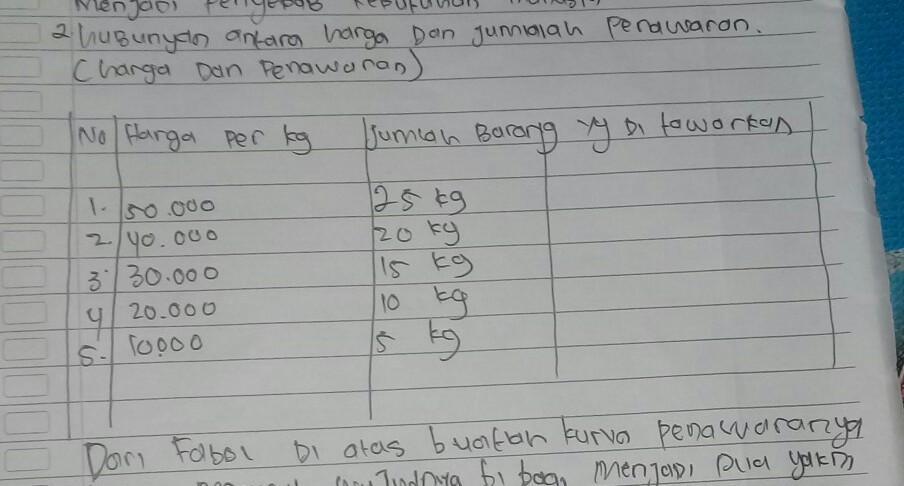 Menjadi Penyebab kebutuhan
2 hubungan antara harga Dan jumlalah Penawaran.
(harga Dan Penawaran)
No Harga Per kg Jumlah Barang yg Di taworkan
1. 50.000 25 kg
2. 40.000 20 kg
3. 30.000 15 kg
4 20.000 10 kg
5. 10.000 5 kg
Dari Tabel Di atas buatkan kurva penawaranya
Di bagi Menjadi Dua yakni